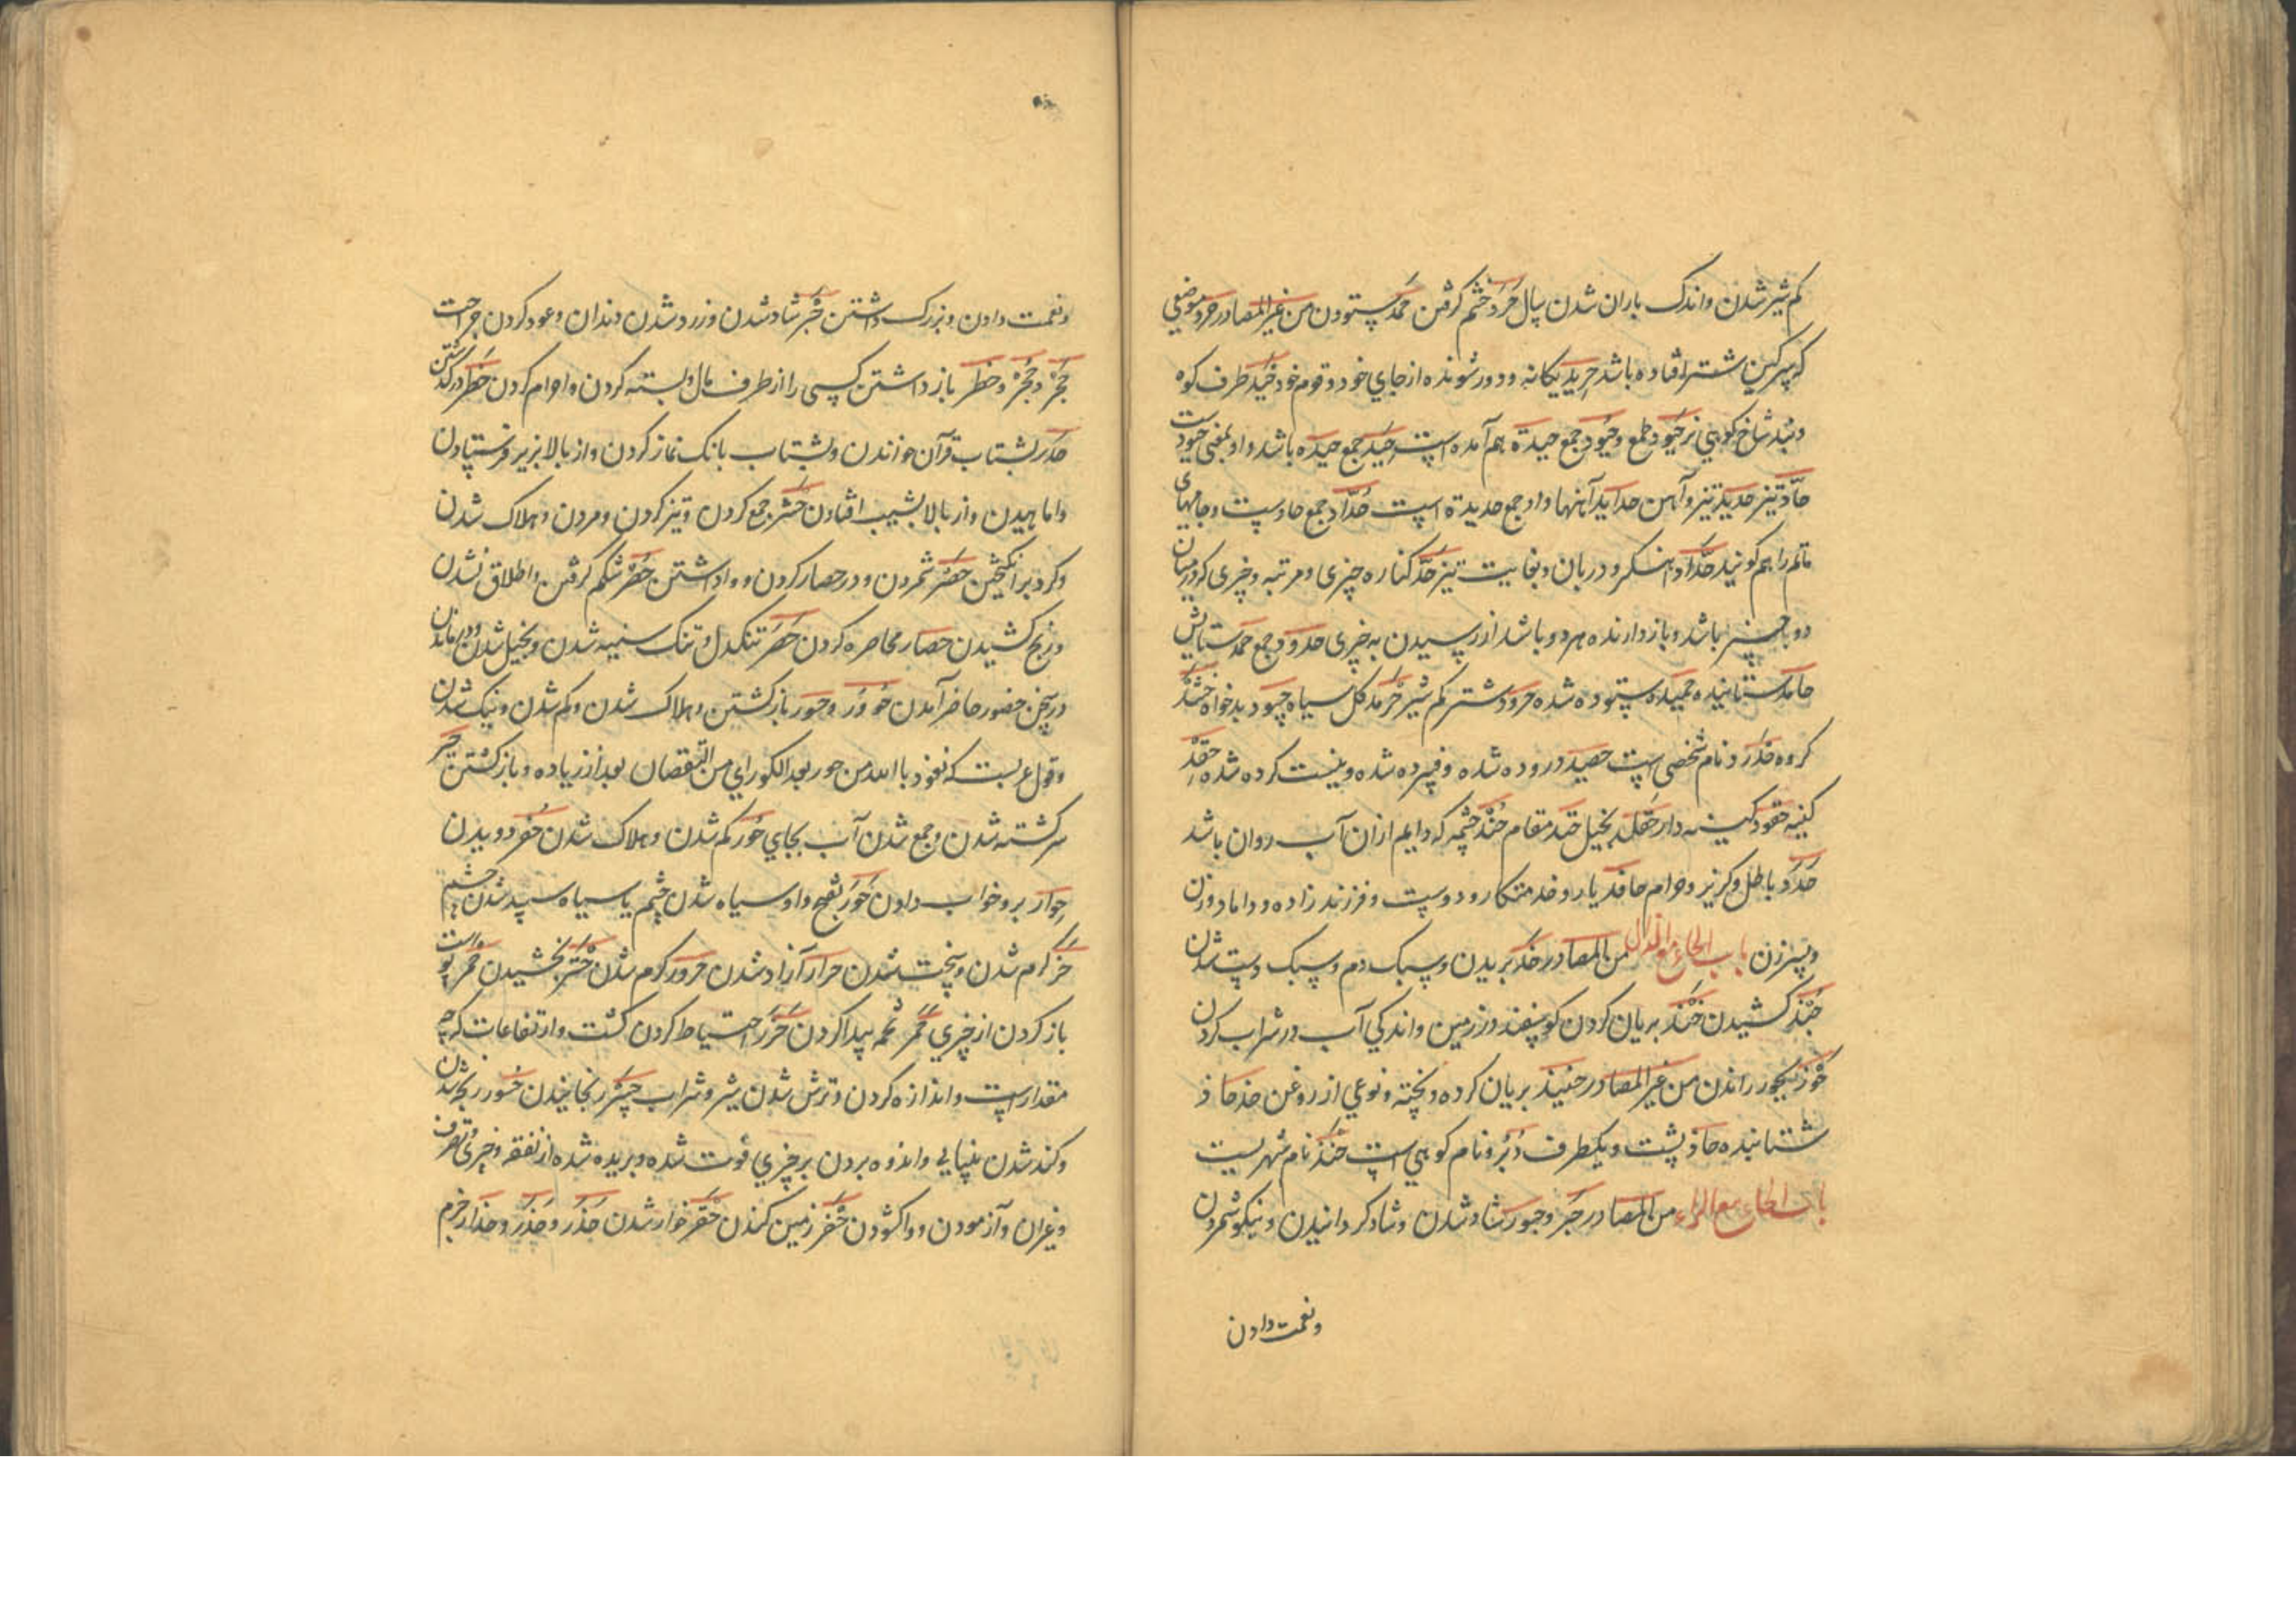 کم شیر شدن واندک باران شدن سال حَرَد خشم کرفتن حَمد ستودن من غیر المصادر حرد موضعی
که سرکین شتر افتاده باشد حرید یکانه ودور شونده از جای خود وقوم خود حَید طرف کوه
شاخ کوهی نر حیود جمع وحیود جمع حیدة هم آمده است حید جمع حیده باشد واو بمعنی حیود است
حادّ تیز حدید تیز وآهن حداید آهنها واو جمع حدیدة است حُدّاد جمع حاد است وجامهای
ماتم را هم کویند حدّاد آهنکر ودربان وبغایت تیز حَدّ کناره چیزی ومرتبه وچیزی که در میان
دو چیز باشد وبازدارنده هر دو باشد از رسیدن به چیزی حدود جمع حمد ستایش
حامد ستاینده حمید ستوده شده حرود شتر کم شیر حرمد کل سیاه حسود بدخواه حشد
کروه نام شخصی است حصید دروده شده وفسرده شده ونیست کرده شده حقد
کینه حقود کینه دار بخیل حتد مقام حُتُد چشمه که دایم ازان آب روان باشد
حَدَد باطل وکریز وحرام حافد یار وخدمتکار ودوست وفرزند زاده وداماد وزن
وپسر زن باب الحاء مع الذال من المصادر حذّ بریدن وسبک دم وسبک دست شدن
حَبْذ کشیدن حَنْذ بریان کردن کوسفند در زمین واندکی آب در شراب کردن
حَوْذ راندن من غیر المصادر حنیذ بریان کرده وپخته ونوعی از روغن حاذ
شتابنده حاذ پشت ویکطرف دُبُر ونام کوهی است حَنَذ نام شهریست
باب الحاء مع الراء من المصادر حَبْر وحبور شاد شدن وشاد کردانیدن ونیکو شمردن
ونعمت دادن
ونعمت دادن وبزرک داشتن حَبَر شاد شدن وزرد شدن دندان وعود کردن جراحت
حَجْر وحُجْر وحظر باز داشتن کسی را از طرف مال وبسته کردن وحرام کردن درکذشتن
حَدر بشتاب قرآن خواندن وبشتاب بانک نماز کردن واز بالا بزیر فرستادن
واماهیدن واز بالا بشیب افتادن حَشر جمع کردن وتیز کردن ومردن وهلاک شدن
وکرد برانکیختن حَصْر شمردن ودر حصار کردن وواداشتن حُصْر شکم کرفتن واطلاق نشدن
ورنج کشیدن حصار محاصره کردن حَصَر تنکدل وتنک سینه شدن وبخیل شدن ودر ماندن
در سخن حضور حاضر آمدن حَوْر وحور باز کشتن وهلاک شدن وکم شدن ونیک شدن
وقول عربست که نعوذ باالله من حور بعد الکور ای من النقصان بعد از زیاده وباز کشتن حیر
سر کشته شدن وجمع شدن آب بجای حُور کم شدن وهلاک شدن دویدن
حوار بر وخواب دادن حَوَر بفتح واو سیاه شدن چشم یا سیاه سپید شدن چشم
حرّ کرم شدن وسخت شدن حرار آزاد شدن حرور کرم شدن حَتْر بخشیدن حمر پوست
باز کردن از چیزی حَمَر تخمه پیدا کردن حَزر احتیاط کردن کشت وارتفاعات که چه
مقدار است واندازه کردن وترش شدن شیر وشراب حسر رنجانیدن حسور رنجه شدن
وکند شدن بینایی واندوه بردن بر چیزی فوت شده وبریده شده از نفقه وچیزی
وغیران وآزمودن وواکشودن حَفْر زمین کندن حَقْر خوار شدن حَذَر وحِذْر وحذار حزم